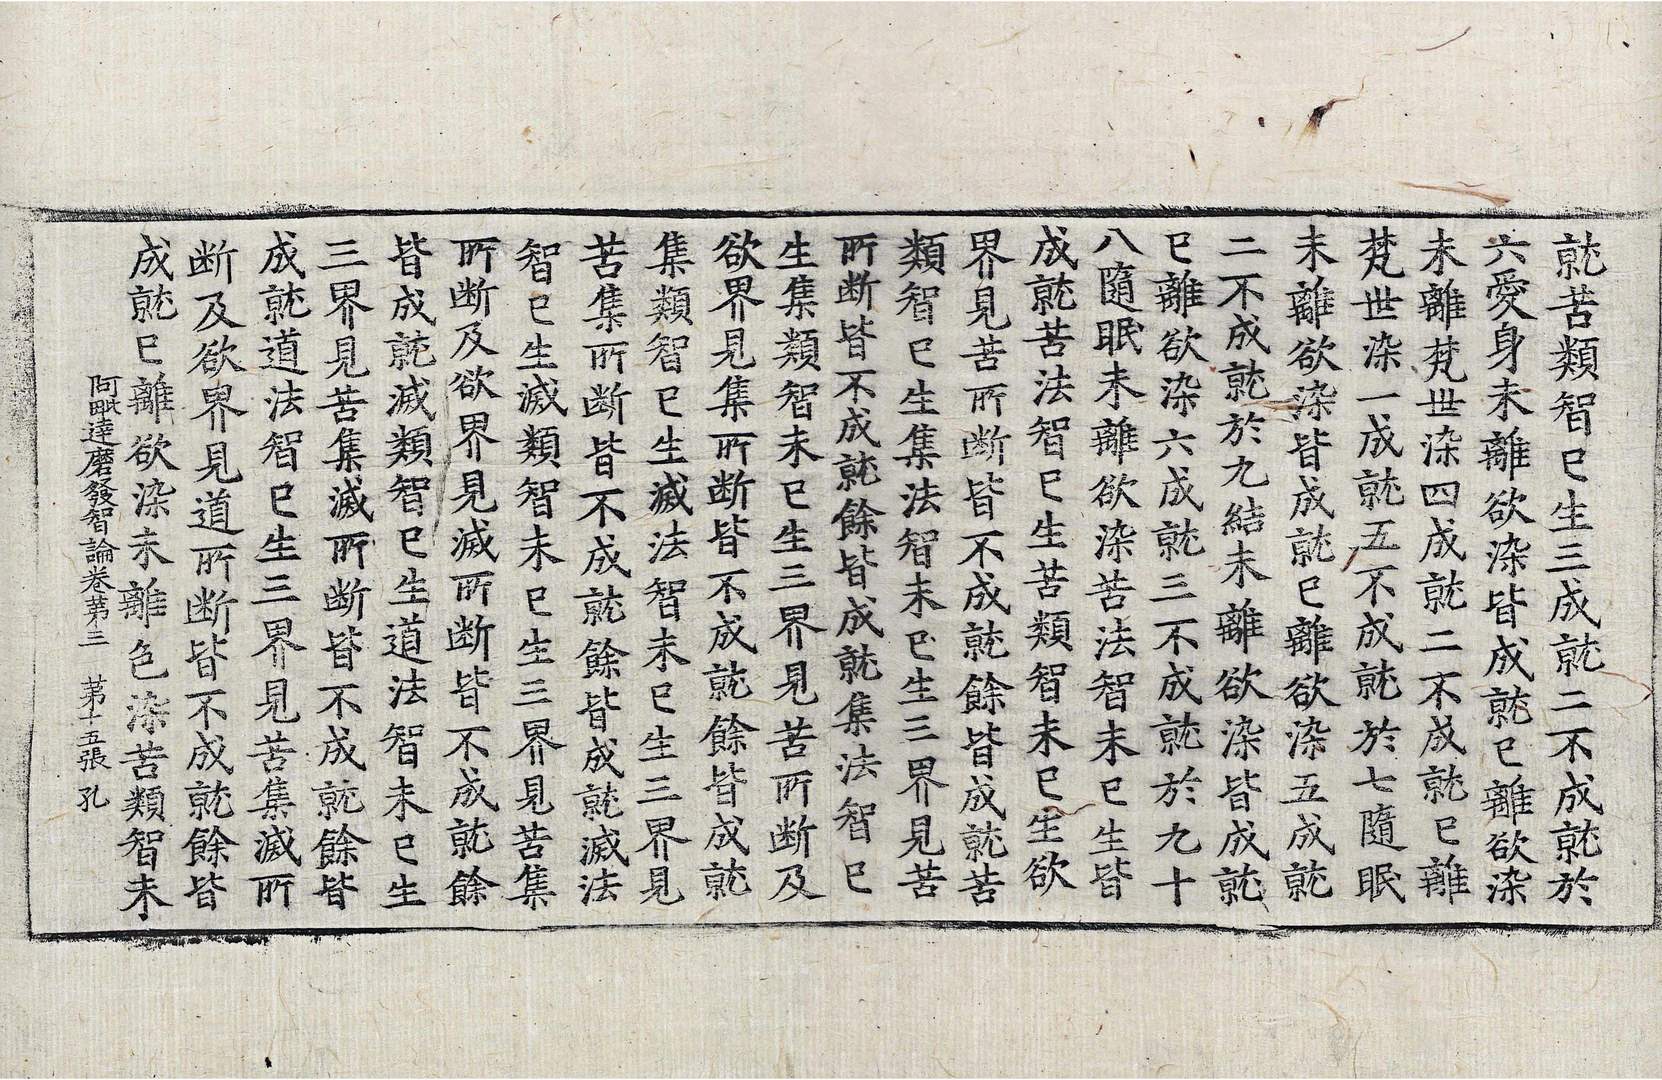 就苦類智已生三成就二不成就於
六愛身未離欲染皆成就已離欲染
未離梵世染四成就二不成就已離
梵世染一成就五不成就於七隨眠
未離欲染皆成就已離欲染五成就
二不成就於九結未離欲染皆成就
已離欲染六成就三不成就於九十
八隨眠未離欲染苦法智未已生皆
成就苦法智已生苦類智未已生欲
界見苦所断皆不成就餘皆成就苦
類智已生集法智未已生三界見苦
所断皆不成就餘皆成就集法智已
生集類智未已生三界見苦所断及
欲界見集所断皆不成就餘皆成就
集類智已生滅法智未已生三界見
苦集所断皆不成就餘皆成就滅法
智已生滅類智未已生三界見苦集
所断及欲界見滅所断皆不成就餘
皆成就滅類智已生道法智未已生
三界見苦集滅所断皆不成就餘皆
成就道法智已生三界見苦集滅所
断及欲界見道所断皆不成就餘皆
成就已離欲染未離色染苦類智未
阿毗達磨發智論卷苐三 苐十五張 孔